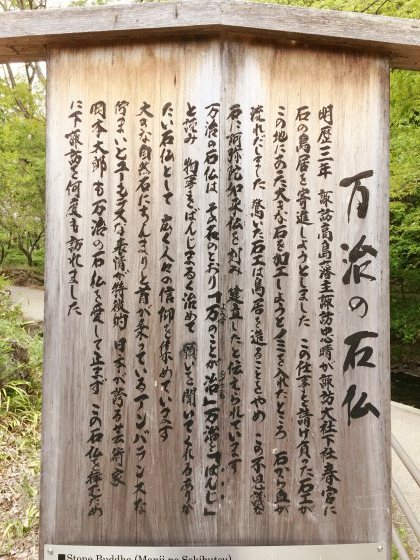 万治の石仏
明暦三年 諏訪高島藩主諏訪忠晴が諏訪大社下社春宮に
石の鳥居を寄進しようとしました この仕事を請け負った石工が
この地にあった大きな石を加工しようとノミを入れたところ 石から血が
流れだしました 驚いた石工は鳥居を造ることをやめ この不思議な
石に阿弥陀如来仏を刻み 建立したと伝えられています
万治の石仏は その名のとおり「万のことが治」万治と「ばんじ」
と読み 物事をばんじまるく治めて 願いを聞いてくれるありが
たい石仏として 広く人々の信仰を集めています
大きな自然石にちんまりと首が乗っているアンバランスな
佇まいとユーモラスな表情が特徴的 日本が誇る芸術家
岡本太郎も万治の石仏を愛して止まず この石仏を拝むため
に下諏訪を何度も訪れました
■Stone Buddha (Manji no Sekibutsu)